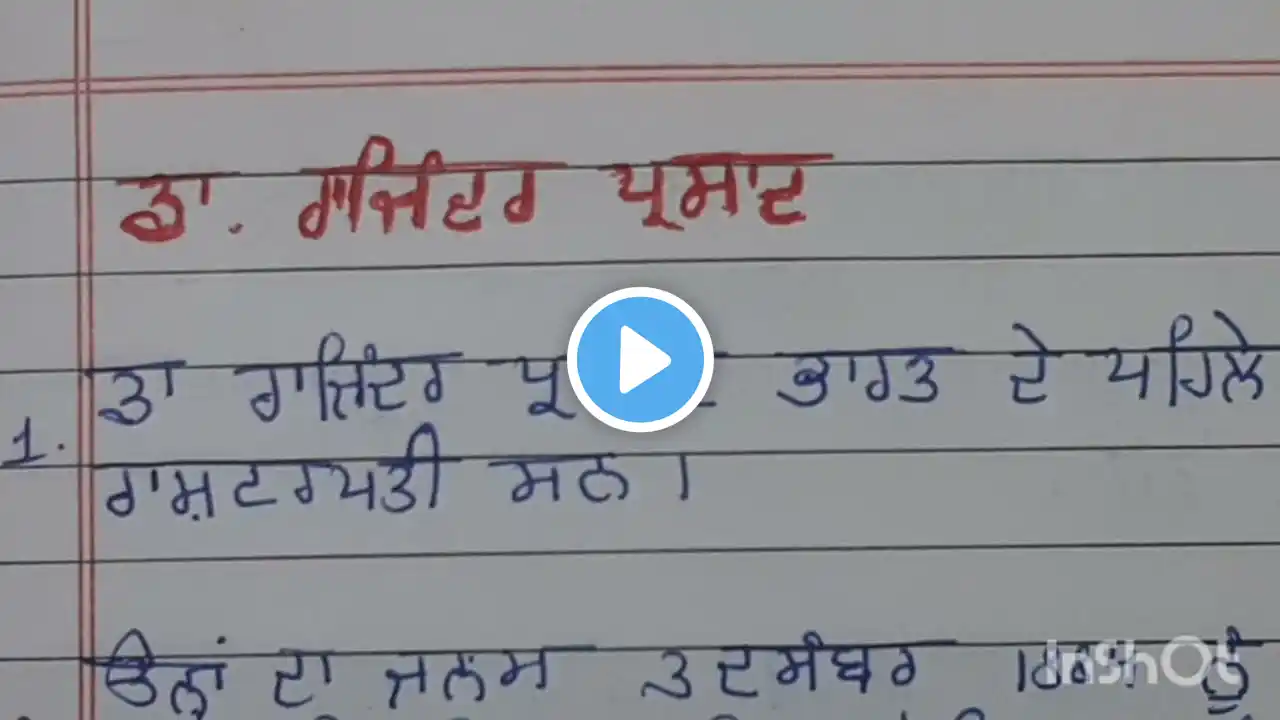 ਡਾ. ਰਾਜਿੰਦਰ ਪ੍ਰਸਾਦ
1. ਡਾ ਰਾਜਿੰਦਰ ਭਾਰਤ ਦੇ ਪਹਿਲੇ
ਰਾਸ਼ਟਰਪਤੀ ਸਨ।
ਉਨ੍ਹਾਂ ਦਾ ਜਨਮ 3 ਦਸੰਬਰ ਨੂੰ
InShOt